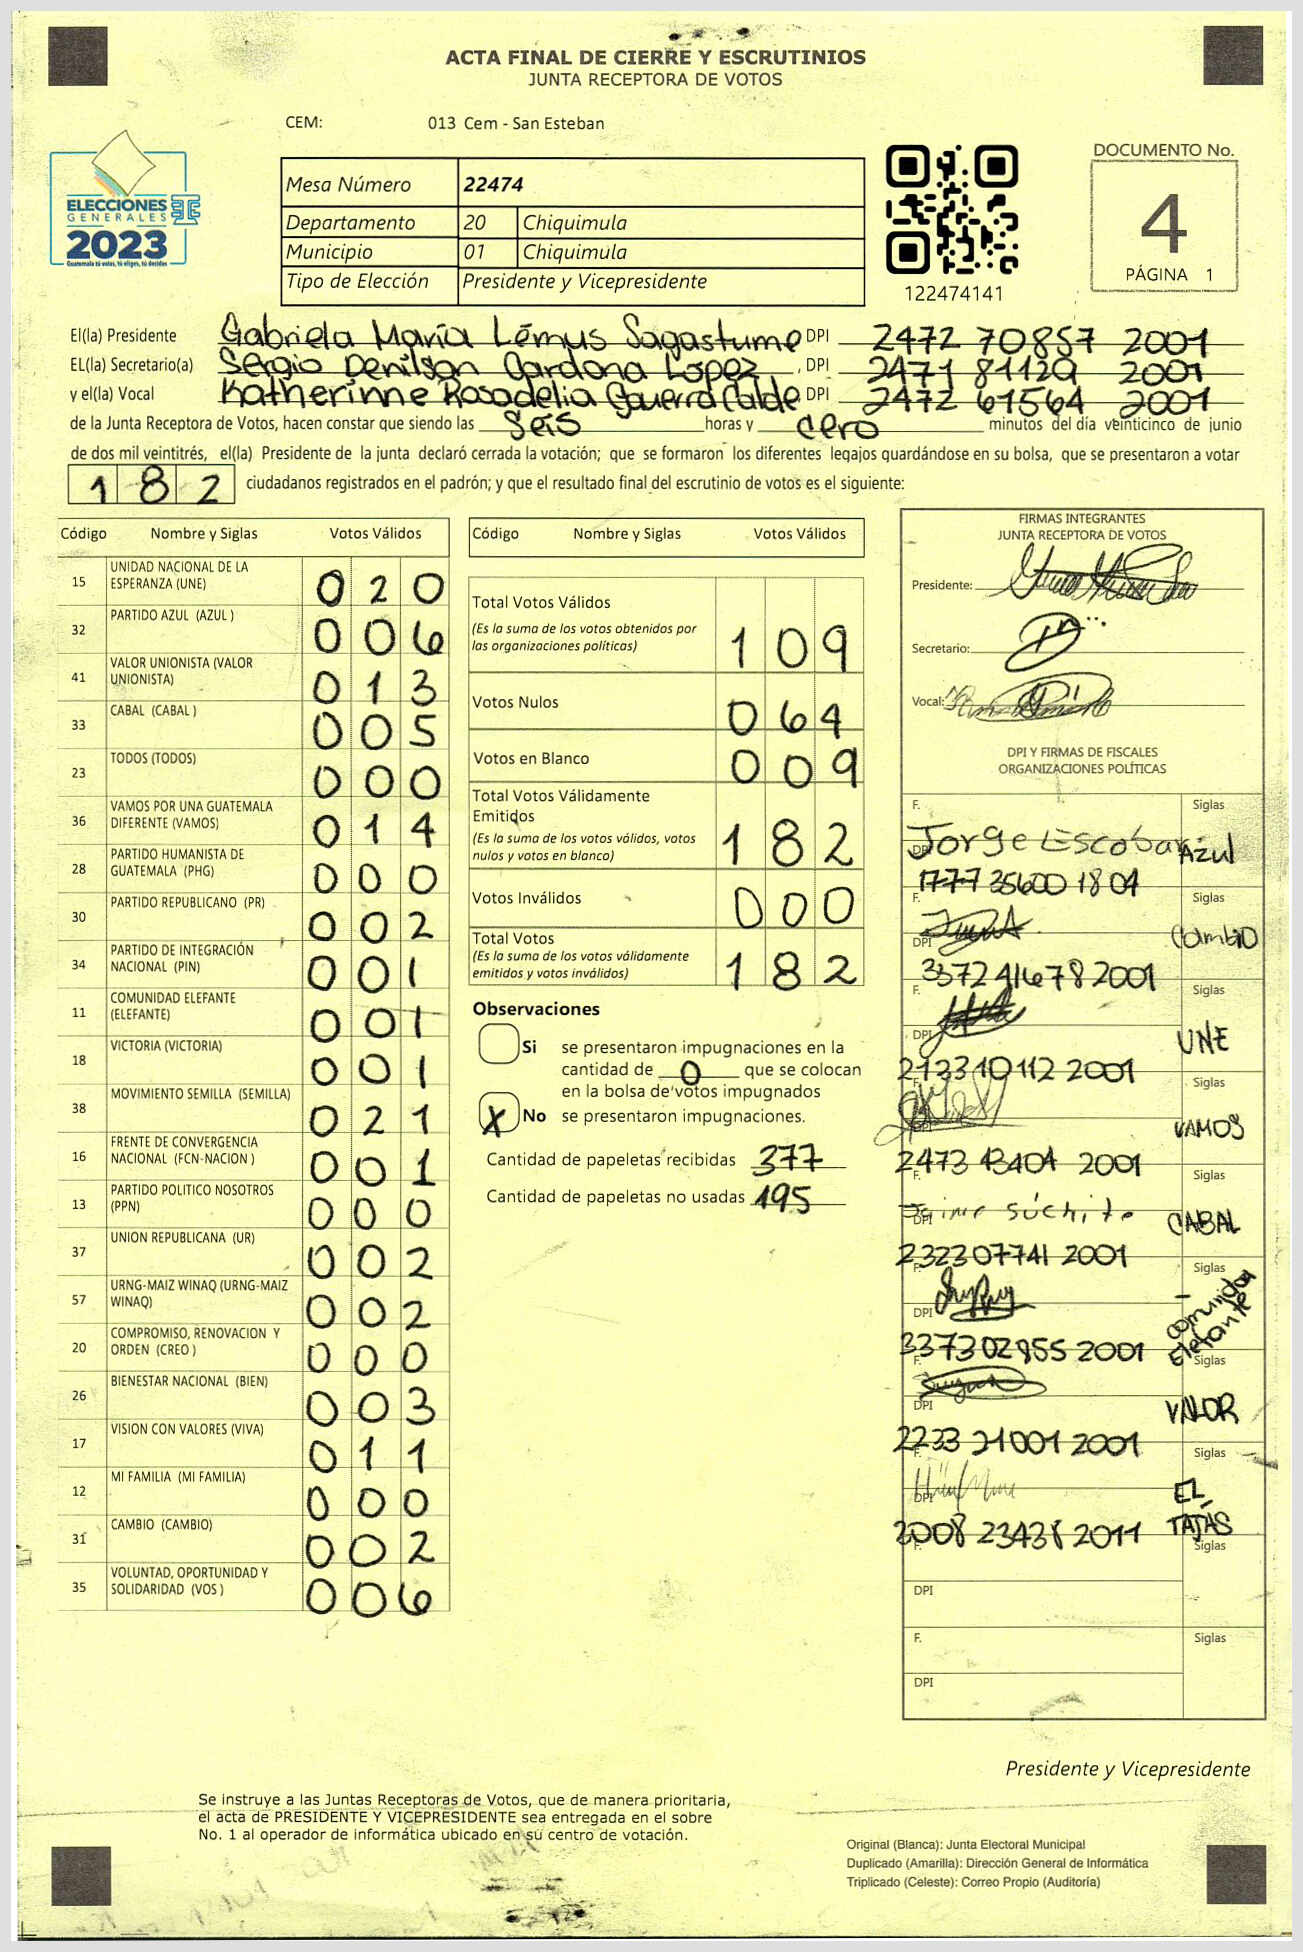 ACTA FINAL DE CIERRE Y ESCRUTINIOS
JUNTA RECEPTORA DE VOTOS
CEM: 013 Cem - San Esteban
ELECCIONES
GENERALES
2023
Guatemala tú votas, tú eliges, tú decides
Mesa Número 22474
Departamento 20 Chiquimula
Municipio 01 Chiquimula
Tipo de Elección Presidente y Vicepresidente
122474141
DOCUMENTO No.
4
PÁGINA 1
El(la) Presidente Gabriela María Lémus Sagastume DPI 2472 70857 2001
EL(la) Secretario(a) Sergio Denilson Cardona López, DPI 2471 81129 2001
y el(la) Vocal Katherinne Rosadelia Guerra Calde DPI 2472 61564 2001
de la Junta Receptora de Votos, hacen constar que siendo las seis horas y cero minutos del día veinticinco de junio
de dos mil veintitrés, el(la) Presidente de la junta declaró cerrada la votación; que se formaron los diferentes legajos guardándose en su bolsa, que se presentaron a votar
182 ciudadanos registrados en el padrón; y que el resultado final del escrutinio de votos es el siguiente:
Código Nombre y Siglas Votos Válidos
15 UNIDAD NACIONAL DE LA ESPERANZA (UNE) 020
32 PARTIDO AZUL (AZUL ) 006
41 VALOR UNIONISTA (VALOR UNIONISTA) 013
33 CABAL (CABAL ) 005
23 TODOS (TODOS) 000
36 VAMOS POR UNA GUATEMALA DIFERENTE (VAMOS) 014
28 PARTIDO HUMANISTA DE GUATEMALA (PHG) 000
30 PARTIDO REPUBLICANO (PR) 002
34 PARTIDO DE INTEGRACIÓN NACIONAL (PIN) 001
11 COMUNIDAD ELEFANTE (ELEFANTE) 001
18 VICTORIA (VICTORIA) 001
38 MOVIMIENTO SEMILLA (SEMILLA) 021
16 FRENTE DE CONVERGENCIA NACIONAL (FCN-NACION ) 001
13 PARTIDO POLITICO NOSOTROS (PPN) 000
37 UNION REPUBLICANA (UR) 002
57 URNG-MAIZ WINAQ (URNG-MAIZ WINAQ) 002
20 COMPROMISO, RENOVACION Y ORDEN (CREO ) 000
26 BIENESTAR NACIONAL (BIEN) 003
17 VISION CON VALORES (VIVA) 011
12 MI FAMILIA (MI FAMILIA) 000
31 CAMBIO (CAMBIO) 002
35 VOLUNTAD, OPORTUNIDAD Y SOLIDARIDAD (VOS ) 006
Código Nombre y Siglas Votos Válidos
Total Votos Válidos 109
(Es la suma de los votos obtenidos por
las organizaciones políticas)
Votos Nulos 064
Votos en Blanco 009
Total Votos Válidamente
Emitidos 182
(Es la suma de los votos válidos, votos
nulos y votos en blanco)
Votos Inválidos 000
Total Votos 182
(Es la suma de los votos válidamente
emitidos y votos inválidos)
Observaciones
Si se presentaron impugnaciones en la
cantidad de 0 que se colocan
en la bolsa de votos impugnados
X No se presentaron impugnaciones.
Cantidad de papeletas recibidas 377
Cantidad de papeletas no usadas 195
FIRMAS INTEGRANTES
JUNTA RECEPTORA DE VOTOS
Presidente:
Secretario:
Vocal:
DPI Y FIRMAS DE FISCALES
ORGANIZACIONES POLÍTICAS
F. Siglas
Jorge Escobar Azul
DPI 1777 35600 1804
F. Siglas
Cambio
DPI 3372 41678 2001
F. Siglas
UNE
DPI 2133 10112 2001
F. Siglas
VAMOS
DPI 2473 43404 2001
F. Siglas
Jaime Súchite CABAL
DPI 2323 07741 2001
F. Siglas
Comunidad Elefante
DPI 3373 02855 2001
F. Siglas
VALOR
DPI 2233 21001 2001
F. Siglas
DPI 2008 23438 2011
F. Siglas
DPI
F. Siglas
DPI
Presidente y Vicepresidente
Se instruye a las Juntas Receptoras de Votos, que de manera prioritaria,
el acta de PRESIDENTE Y VICEPRESIDENTE sea entregada en el sobre
No. 1 al operador de informática ubicado en su centro de votación.
Original (Blanca): Junta Electoral Municipal
Duplicado (Amarilla): Dirección General de Informática
Triplicado (Celeste): Correo Propio (Auditoría)